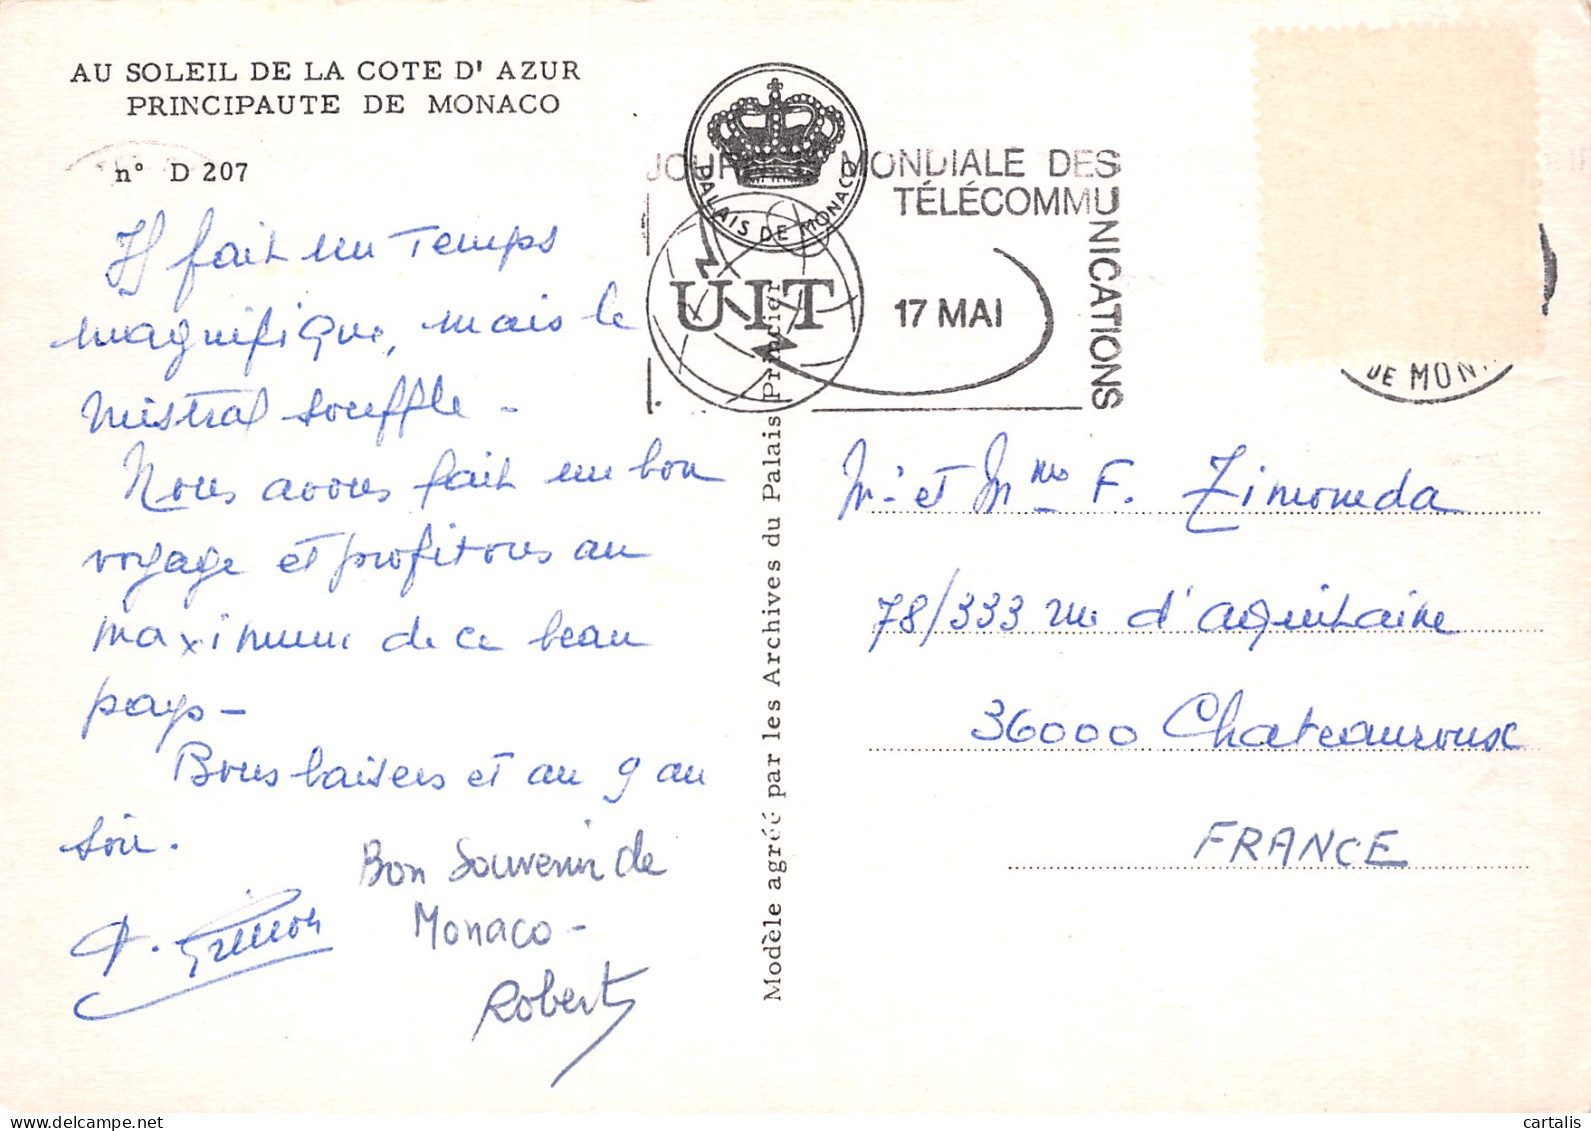 AU SOLEIL DE LA COTE D' AZUR
PRINCIPAUTE DE MONACO
n° D 207
Il fait un temps
magnifique, mais le
Mistral souffle -
Nous avons fait un bon
voyage et profitons au
maximum de ce beau
pays -
Bons baisers et au 9 au
soir.
Bon Souvenir de
Monaco -
Robert
PALAIS DE MONACO
MONDIALE DES
TÉLÉCOMMUNICATIONS
UIT
17 MAI
DE MON
Modèle agréé par les Archives du Palais Princier
Mr et Mme F. Zimonda
78/333 rue d'aquitaine
36000 Chateauroux
FRANCE
cartalis